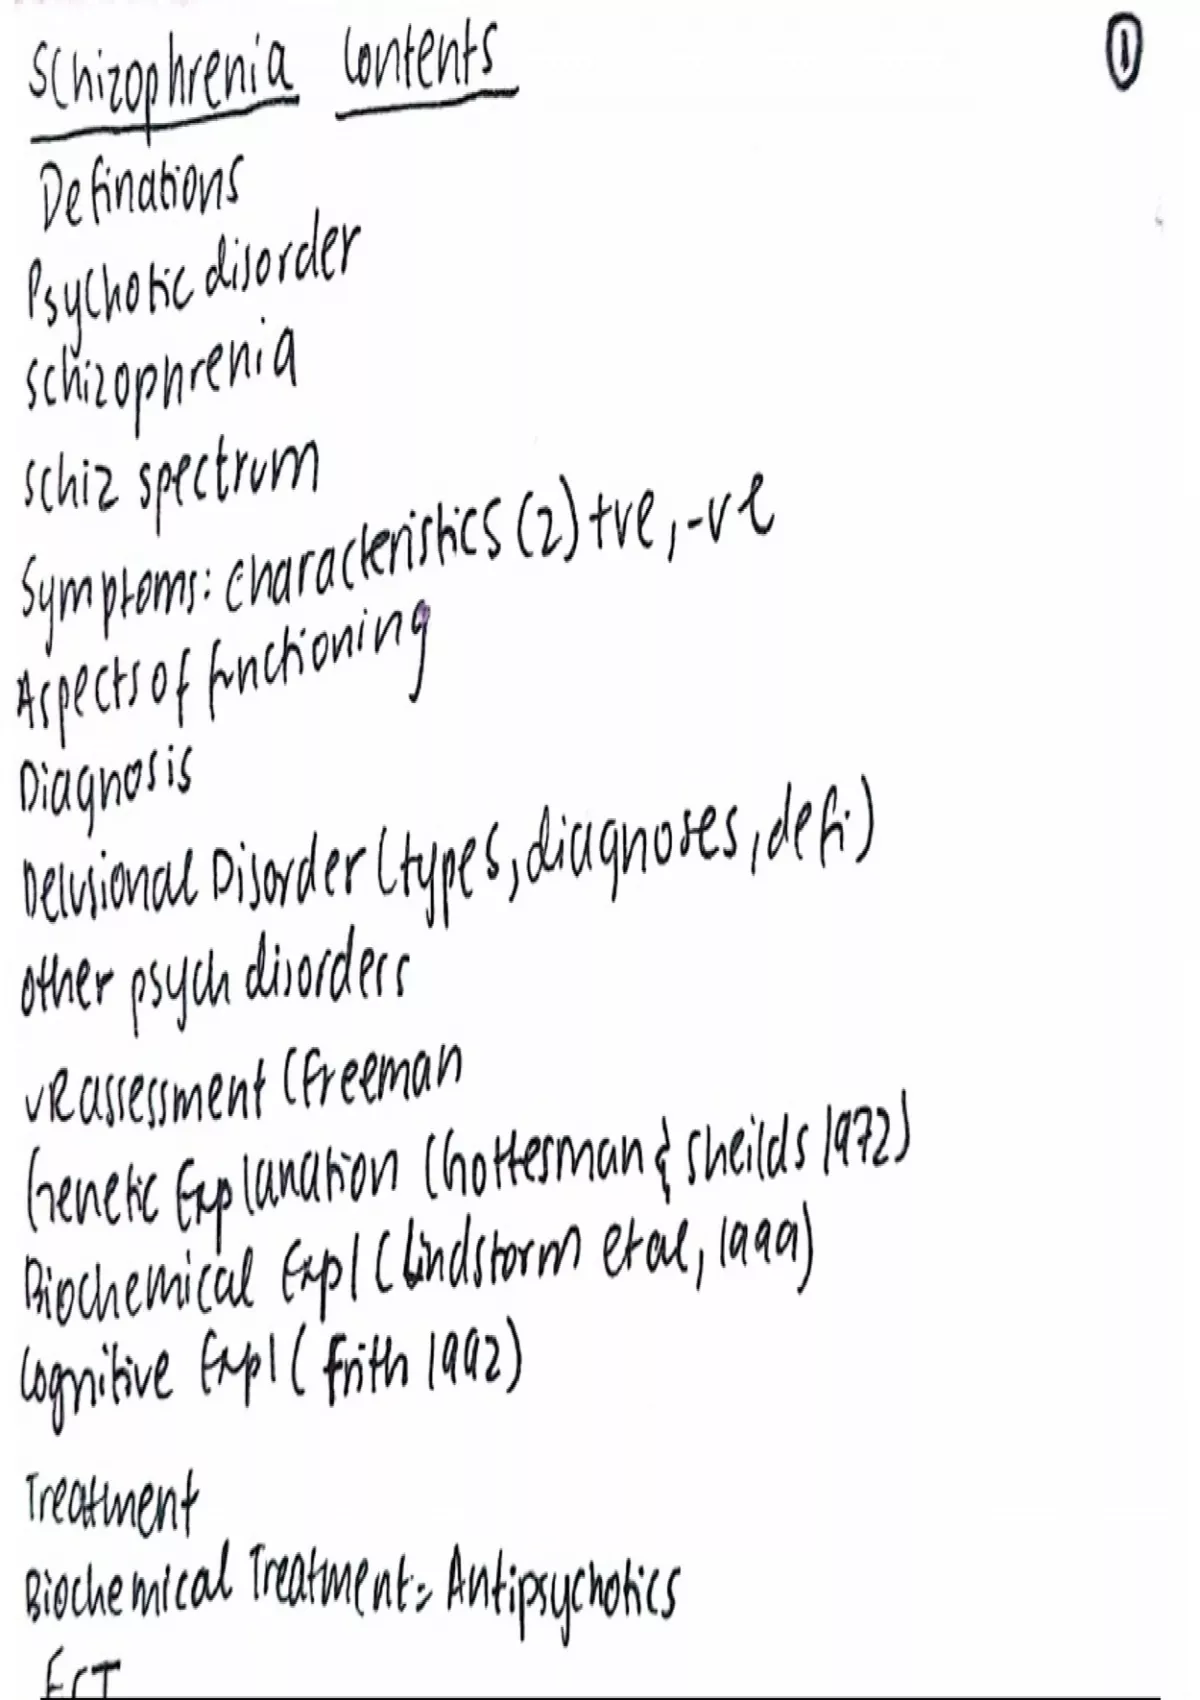 Schizophrenia Contents
①
Definations
Psychotic disorder
schizophrenia
schiz spectrum
Symptoms: characteristics (2) +ve, -ve
Aspects of functioning
Diagnosis
Delusional Disorder (types, diagnoses, defi)
other psych disorders
VR assessment (Freeman
Genetic Explanation (Gottesman & Sheilds 1972)
Biochemical Expl (Lindstorm et al, 1999)
Cognitive Expl (Frith 1992)
Treatment
Biochemical Treatment: Antipsychotics
ECT